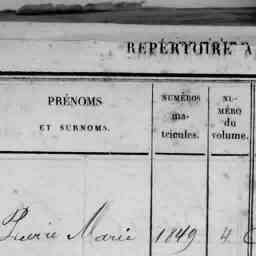 RÉPERTOIRE A
PRÉNOMS
ET SURNOMS.
NUMÉROS
ma-
tricules.
NU-
MÉRO
du
volume.
Pierre Marie 1849 4